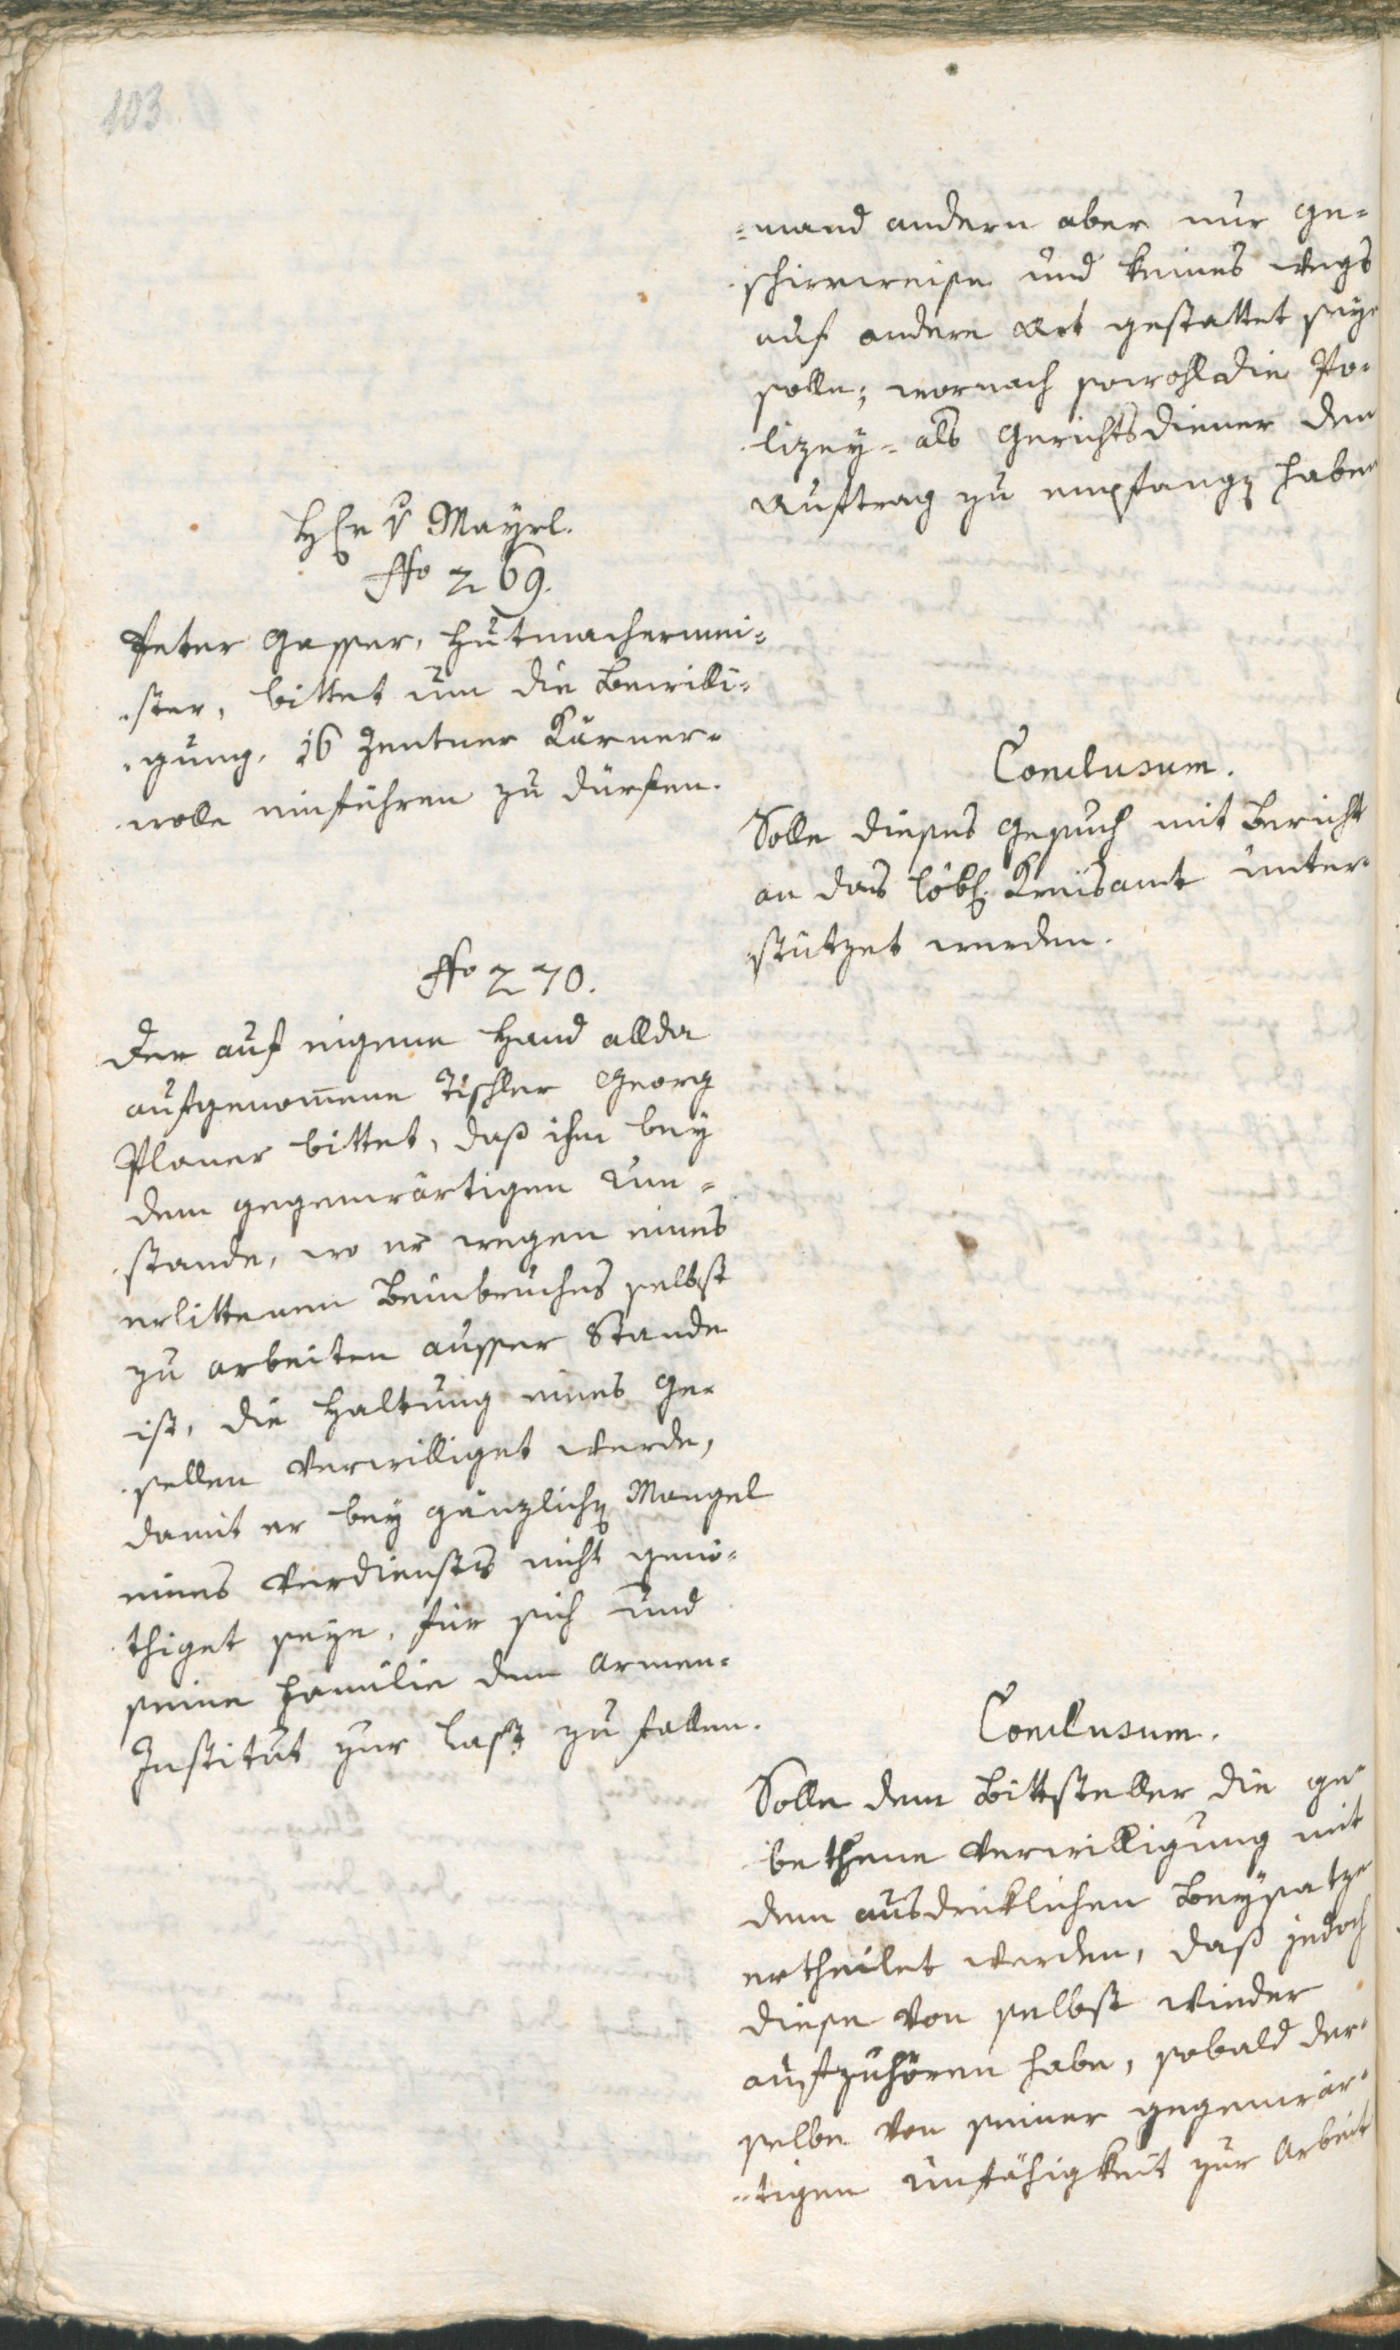 103
=mand andern aber nur ge=
schirrweise und keines wegs
auf andere Art gestattet seye
solle; wornach sowohl die Po=
lizey= als Gerichtsdiener den
Auftrag zu empfangen haben
Herr v Mayrl.
Nro 269.
Peter Gasser, Hutmachermei=
ster, bittet um die Bewilli=
gung, 16 Zentner Kärner=
wolle einführen zu dürfen.
Conclusum.
Solle dieses Gesuch mit Bericht
an das löbl. Kreisamt unter=
stützet werden.
Nro 270.
Der auf eigene Hand allda
aufgenommene Tischler Georg
Planer bittet, daß ihm bey
dem gegenwärtigen Um=
stande, wo er wegen eines
erlittenen Beinbruches selbst
zu arbeiten ausser Stande
ist, die Haltung eines Ge=
sellen verwilliget werde,
damit er bey gänzlichen Mangel
eines Verdienstes nicht genö=
thiget seye, für sich und
seine Familie dem Armen=
Institut zur Last zu fallen.
Conclusum.
Solle dem Bittsteller die ge=
bethene Verwilligung mit
dem ausdrüklichen Beysatze
ertheilet werden, daß jedoch
diese von selbst wieder
aufzuhören habe, sobald der=
selbe von seiner gegenwär=
tigen Unfähigkeit zur Arbeit